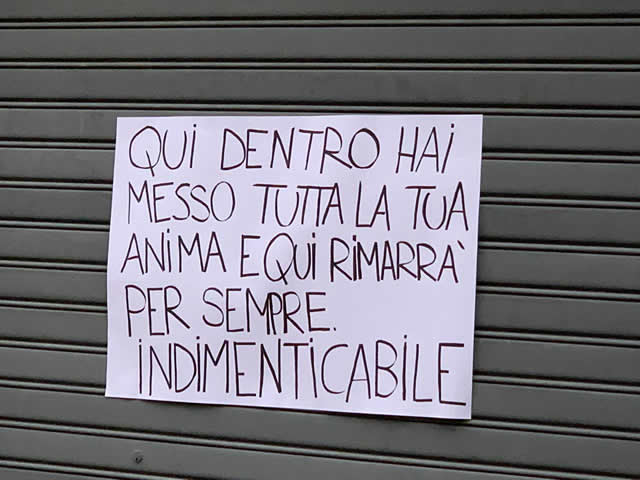 QUI DENTRO HAI
MESSO TUTTA LA TUA
ANIMA E QUI RIMARRA'
PER SEMPRE.
INDIMENTICABILE